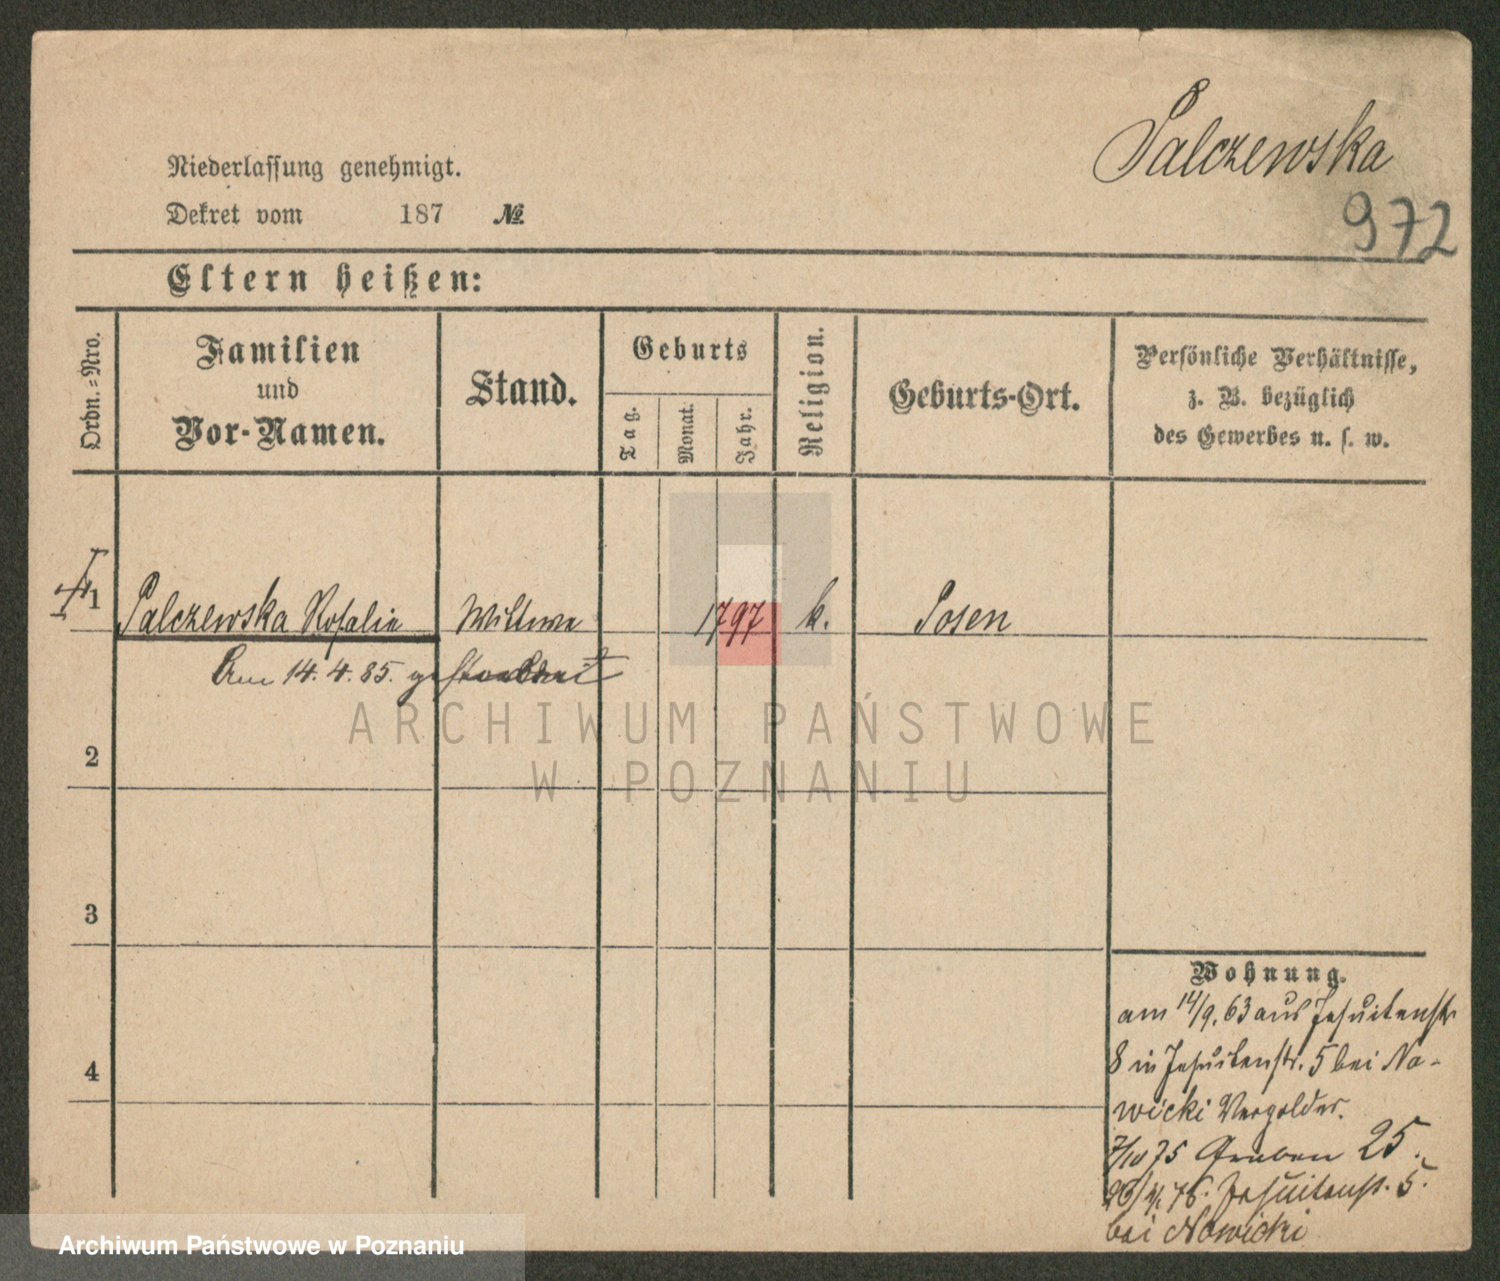 Palczewska
972
Niederlassung genehmigt.
Dekret vom 187 №
Eltern heißen:
Ordn.-Nro.
Familien
und
Vor-Namen.
Stand.
Geburts
Tag.
Monat.
Jahr.
Religion.
Geburts-Ort.
Persönliche Verhältnisse,
z. B. bezüglich
des Gewerbes u. s. w.
1 Palczewska Rosalie Wittwe 1797 k. Posen
Am 14.4.85. gestorben
2
3
4
Wohnung.
am 14/9. 63 aus Jesuitenstr
8 in Jesuitenstr. 5 bei No-
wicki Vergolder.
7/10 75 Graben 25.
76. Jesuitenst. 5.
bei Nowicki
ARCHIWUM PAŃSTWOWE
W POZNANIU
Archiwum Państwowe w Poznaniu